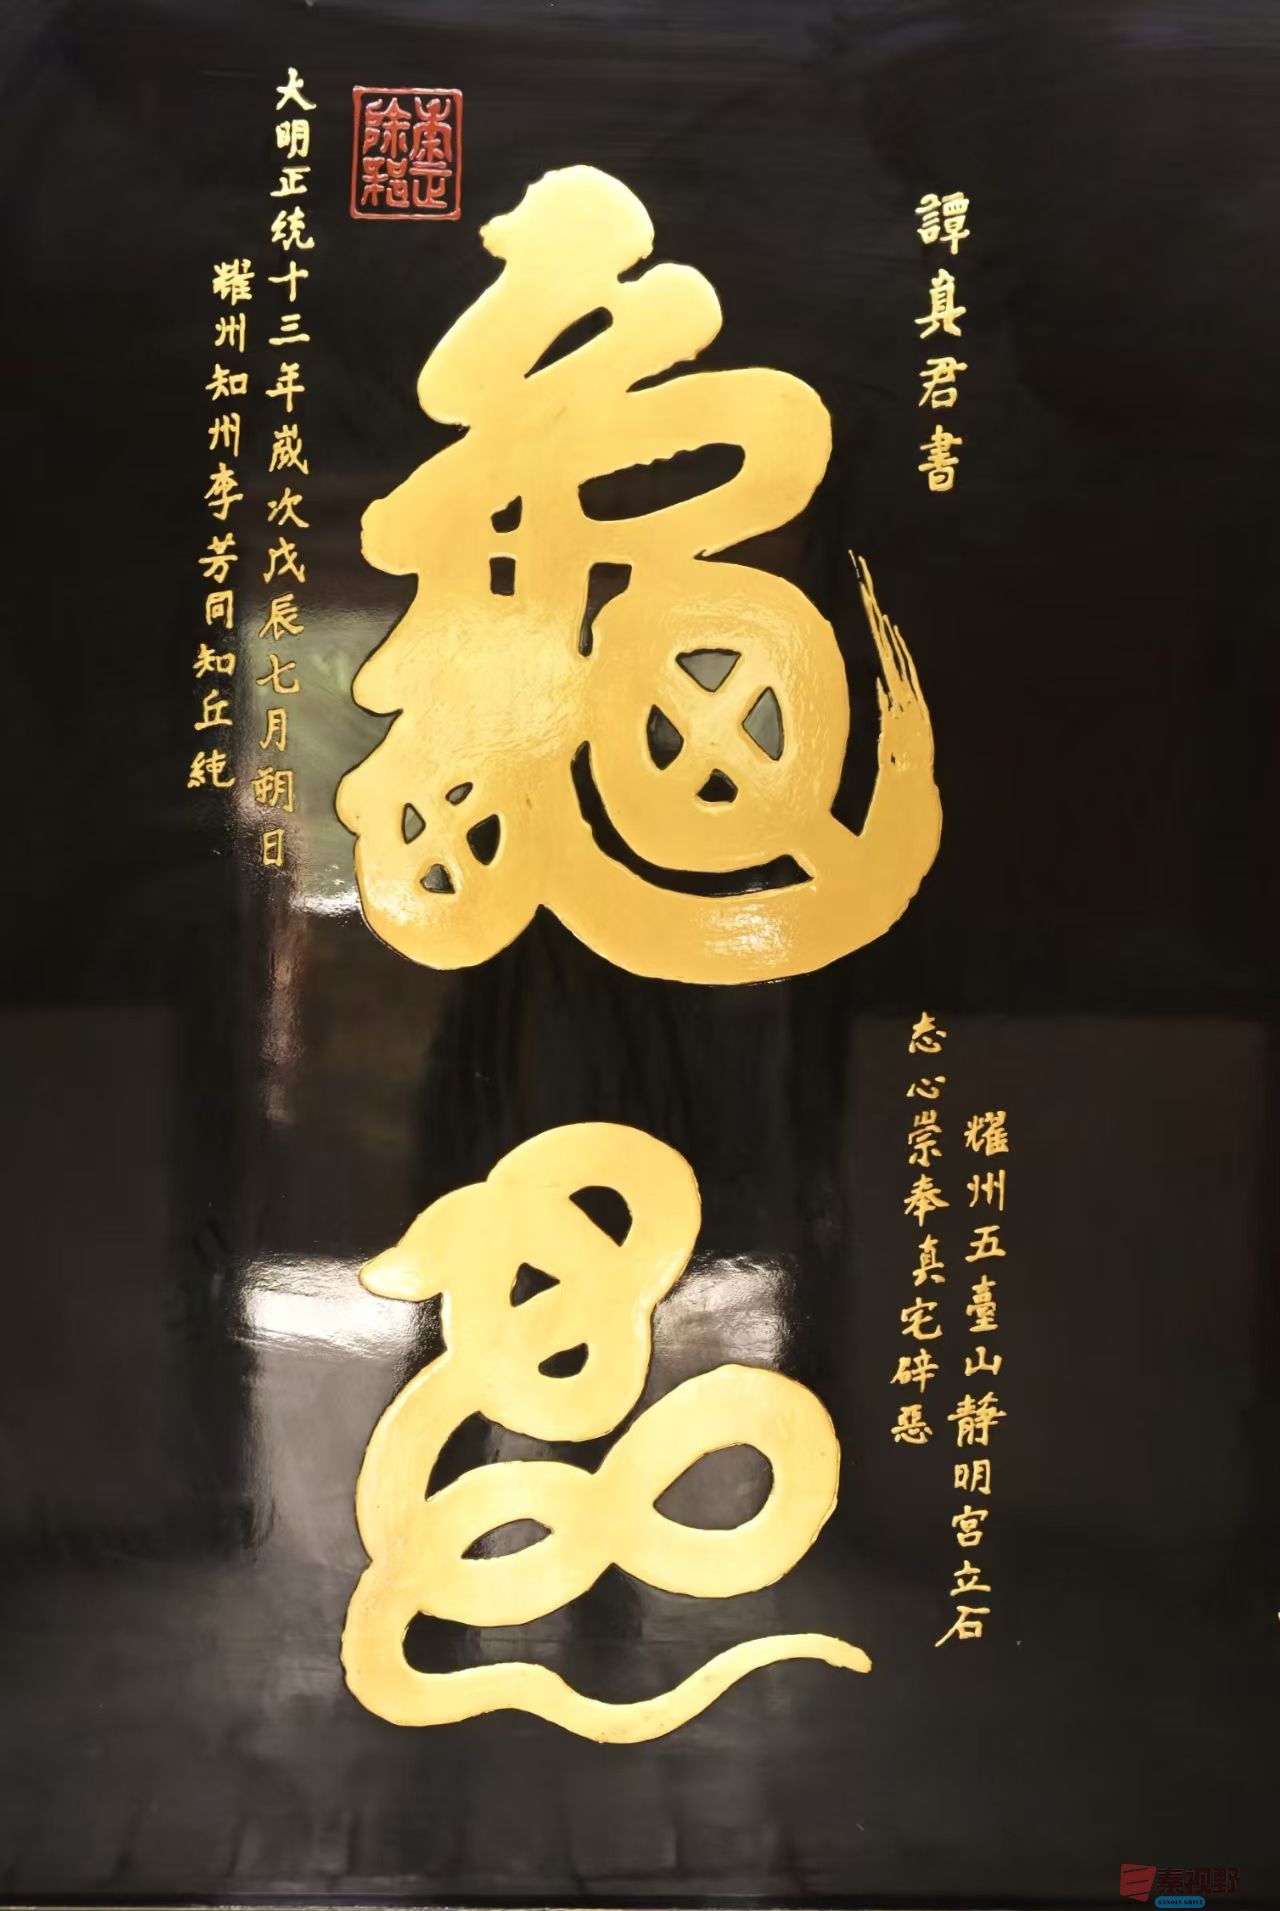 譚真君書
耀州五臺山静明宫立石
志心崇奉真宅辟惡
龜
蛇
大明正统十三年歲次戊辰七月朔日
耀州知州李芳同知丘純
秦视野